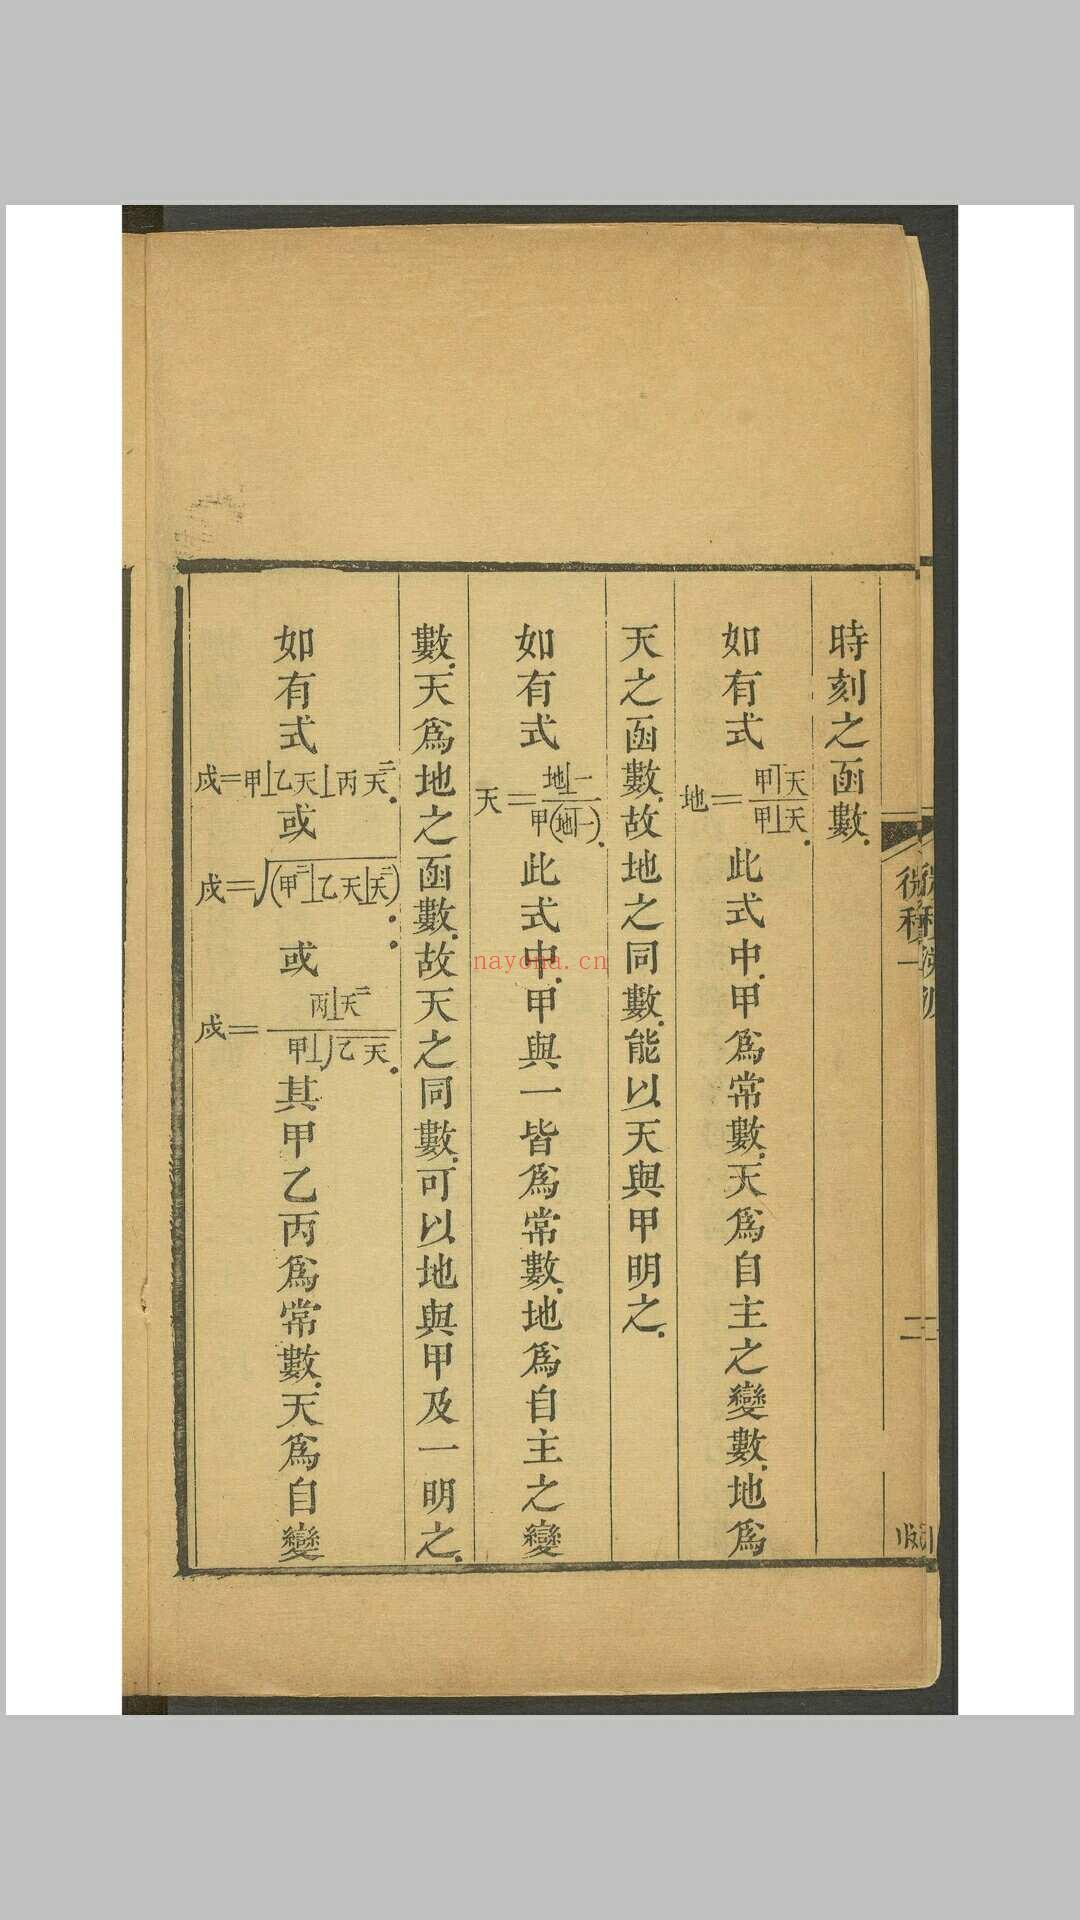 時刻之函數.
如有式 地=甲丅天/甲丄天. 此式中.甲爲常數.天爲自主之變數.地爲
天之函數.故地之同數.能以天與甲明之.
如有式 天=地丄一/甲(地丅一). 此式中.甲與一皆爲常數.地爲自主之變
數.天爲地之函數.故天之同數.可以地與甲及一明之.
如有式 戍=甲丄乙天丄丙天二. 或 戍=√(甲二丄乙天丄天二). 或. 戍=丙丄天二/甲丄√乙天. 其甲乙丙爲常數.天爲自變
微積一
二
nayona.cn